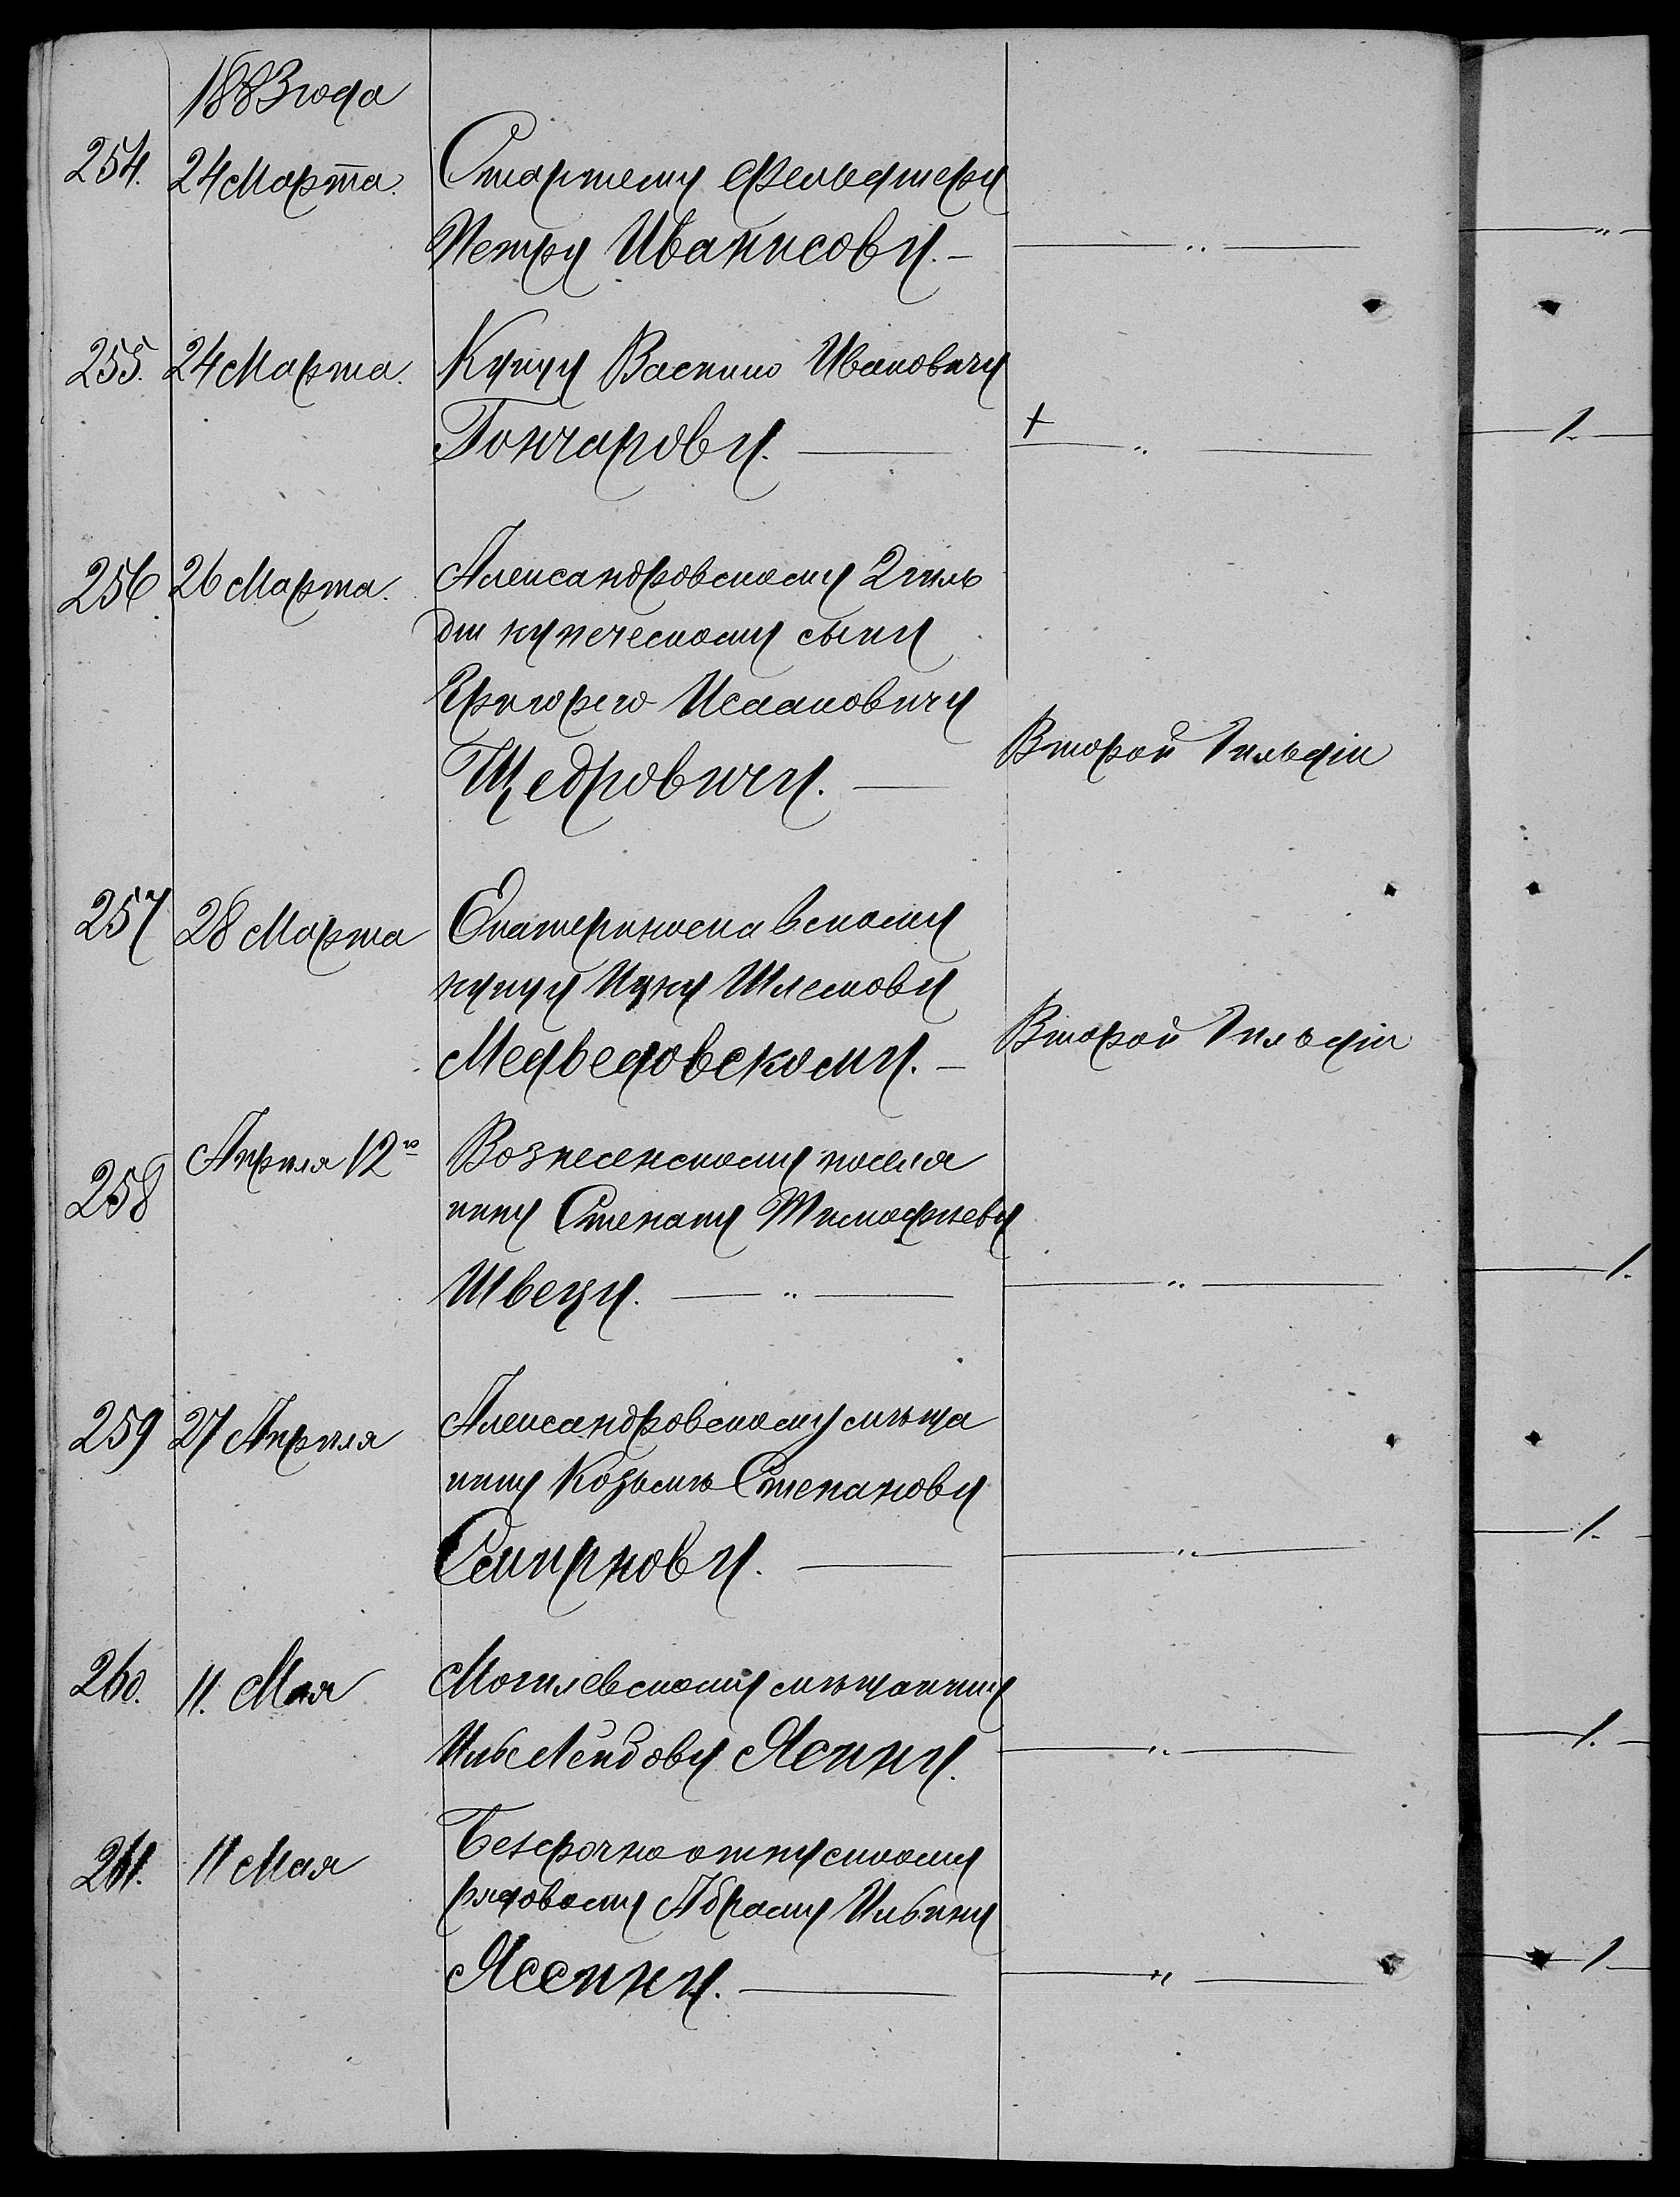 1883 года
254. 24 Марта. Старшему Фельдшеру
Петру Иванисову. — — " —
255. 24 Марта. Купцу Василию Ивановичу
Гончарову. — + — " — 1. —
256. 26 Марта. Александровскому 2 гиль
дии купеческому сыну
Григорію Исааковичу
Щедровичу. — Второй Гильдіи
257 28 Марта Екатеринославскому
купцу Ицку Шлемову
Медведовскому. — Второй Гильдіи
258 Апреля 12го Вознесенскому поселя
нину Степану Тимофееву
Швецу. — " — — " — 1.
259 27 Апреля Александровскому мѣща
нину Козьмѣ Степанову
Смирнову. — — " — 1. —
260. 11. Мая Могилевскому мѣщанину
Ильѣ Лейбову Ясину. — " — 1. —
261. 11 Мая Безсрочно отпускному
рядовому Абраму Ильину
Ясеину. — — " — 1 —